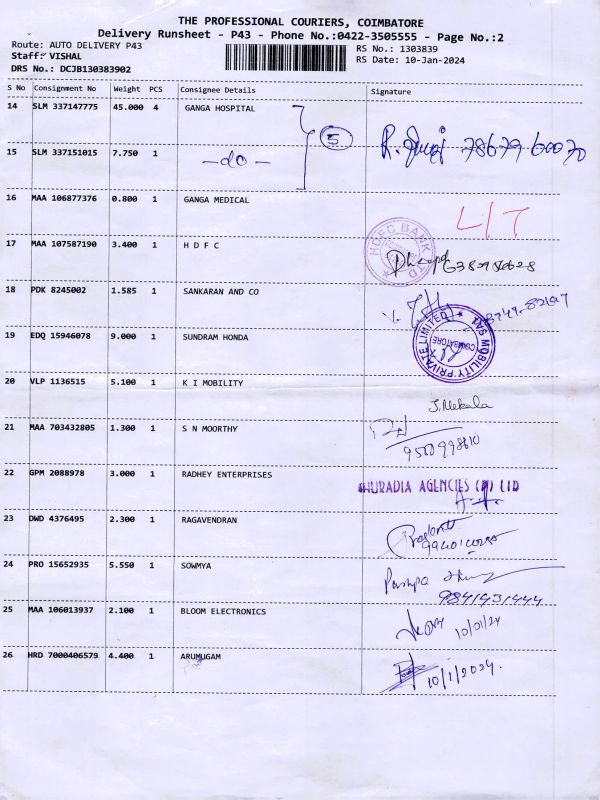 THE PROFESSIONAL COURIERS, COIMBATORE
Delivery Runsheet - P43 - Phone No.:0422-3505555 - Page No.:2
Route: AUTO DELIVERY P43
Staff: VISHAL
DRS No.: DCJB130383902
RS No.: 1303839
RS Date: 10-Jan-2024
S No Consignment No Weight PCS Consignee Details Signature
14 SLM 337147775 45.000 4 GANGA HOSPITAL
5
15 SLM 337151015 7.750 1 -do-
16 MAA 106877376 0.800 1 GANGA MEDICAL L/T
HDFC BANK LTD
17 MAA 107587190 3.400 1 H D F C
18 PDK 8245002 1.585 1 SANKARAN AND CO
TVS MOBILITY PRIVATE LIMITED
COIMBATORE
19 EDQ 15946078 9.000 1 SUNDRAM HONDA
20 VLP 1136515 5.100 1 K I MOBILITY
J. Mekala
21 MAA 703432805 1.300 1 S N MOORTHY
22 GPM 2088978 3.000 1 RADHEY ENTERPRISES
HURADIA AGENCIES (P) LTD
23 DWD 4376495 2.300 1 RAGAVENDRAN
24 PRO 15652935 5.550 1 SOWMYA
9841431444
25 MAA 106013937 2.100 1 BLOOM ELECTRONICS
10/01/24
26 HRD 7000406579 4.400 1 ARUMUGAM
10/1/2024.